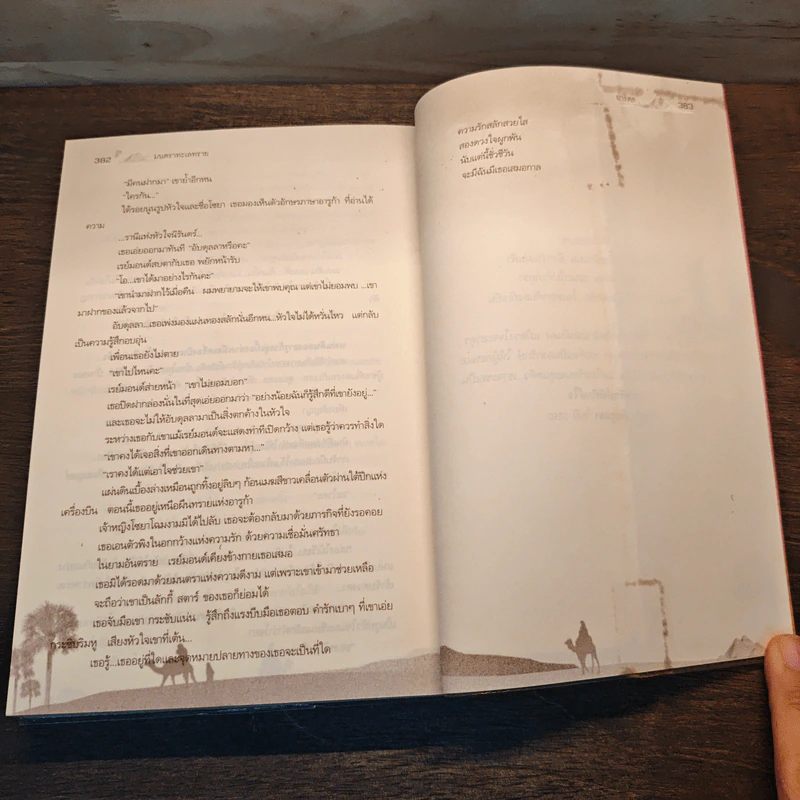 382
มนตราทะเลทราย
"มีคนฝากมา" เขาย้ำอีกหน
"ใครกัน..."
ใต้รอยนูนรูปหัวใจและชื่อโซยา เธอมองเห็นตัวอักษรภาษาอารูก้า ที่อ่านได้
ความ
...ราณีแห่งหัวใจนิรันดร์...
เธอเอ่ยออกมาทันที "อับดุลลาหรือคะ"
เรย์มอนด์สบตากับเธอ พยักหน้ารับ
"โอ...เขาได้มาอย่างไรกันคะ"
"เขานำมาฝากไว้เมื่อคืน ผมพยายามจะให้เขาพบคุณ แต่เขาไม่ยอมพบ ...เขา
มาฝากของแล้วจากไป"
อับดุลลา...เธอเพ่งมองแผ่นทองสลักนั่นอีกหน...หัวใจไม่ได้หวั่นไหว แต่กลับ
เป็นความรู้สึกอบอุ่น
เพื่อนเธอยังไม่ตาย
"เขาไปไหนคะ"
เรย์มอนด์ส่ายหน้า "เขาไม่ยอมบอก"
เธอปิดฝากล่องนั่นในที่สุดเอ่ยออกมาว่า "อย่างน้อยฉันก็รู้สึกดีที่เขายังอยู่..."
และเธอจะไม่ให้อับดุลลามาเป็นสิ่งตกค้างในหัวใจ
ระหว่างเธอกับเขาแม้เรย์มอนด์จะแสดงท่าทีเปิดกว้าง แต่เธอรู้ว่าควรทำสิ่งใด
"เขาคงได้เจอสิ่งที่เขาออกเดินทางตามหา..."
"เราคงได้แต่เอาใจช่วยเขา"
แผ่นดินเบื้องล่างเหมือนถูกทิ้งอยู่ลิบๆ ก้อนเมฆสีขาวเคลื่อนตัวผ่านใต้ปีกแห่ง
เครื่องบิน ตอนนี้เธออยู่เหนือผืนทรายแห่งอารูก้า
เจ้าหญิงโซยาโฉมงามมิได้ไปลับ เธอจะต้องกลับมาด้วยภารกิจที่ยังรอคอย
เธอเอนตัวพิงในอกกว้างแห่งความรัก ด้วยความเชื่อมั่นศรัทธา
ในยามอันตราย เรย์มอนด์เคียงข้างกายเธอเสมอ
เธอมิได้รอดมาด้วยมนตราแห่งความดีงาม แต่เพราะเขาเข้ามาช่วยเหลือ
จะถือว่าเขาเป็นลักกี้ สตาร์ ของเธอก็ย่อมได้
เธอจับมือเขา กระชับแน่น รู้สึกถึงแรงบีบมือเธอตอบ คำรักเบาๆ ที่เขาเอ่ย
กระซิบริมหู เสียงหัวใจเขาที่เต้น...
เธอรู้...เธออยู่ที่ใดและจุดหมายปลายทางของเธอจะเป็นที่ใด
383
ความรักสลักสวยใส
สองดวงใจผูกพัน
นับแต่นี้ชั่วชีวัน
จะมีฉันมีเธอเสมอกาล